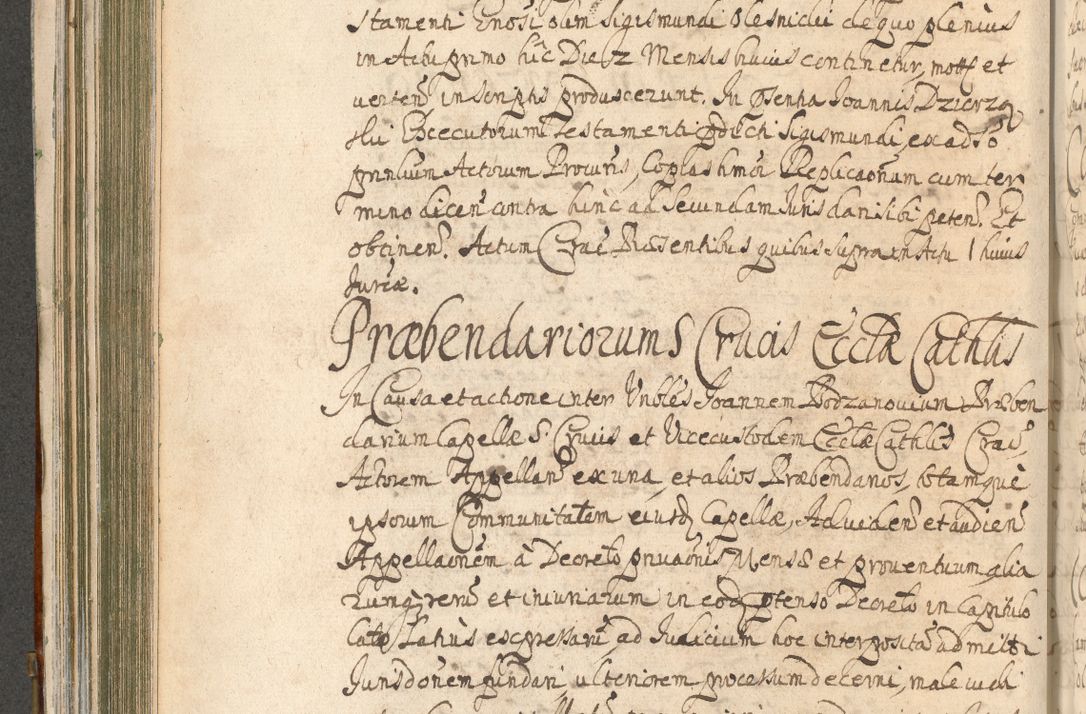 stamenti Enosi olim Sigismundi Olesnicki de quo plenius
in Actu primo hic Die 2 Mensis huius continetur, et
verten̄ in scriptis produxcerunt. In pn̄tia Joannis Dzierzą
ski Execcutorum Testamenti pdicti Sigismundi, ex adso
pnn̄lium Actorum Procuris, Copias hmōi Replicaōnum cum ter
mino dicen̄ contra hinc ad Secundam Juris dari sibi peten̄. Et
obtinen̄. Actum Crac̄ Præsentibus quibus supra in Actu 1 huius
Juriæ.
Præbendariorum S Crucis Eccłæ Cathlis
In Causa et actione inter Vnbłes Joannem Bodzanovium Præben
darium Capellæ S. Crucis et Vicecustodem Eccłæ Cathlis Crac̄,
Actorem Appellan̄ ex una, et alios Præbendarios, totamque
ipsorum Communitatem eiusdȩ Capellæ, Ad viden̄ et audien̄
Appellaōnem à Decreto priuaōnis Mensæ et prouentuum, alia
rungȩ reru̅ et iniuriarum in eodȩ ptenso Decreto in Capitulo
Cathłi Latius expressaru̅, ad Judicium hoc interposita̅ admitti
Jurisdōnem fundari, ulteriorem processum decerni, male iudi